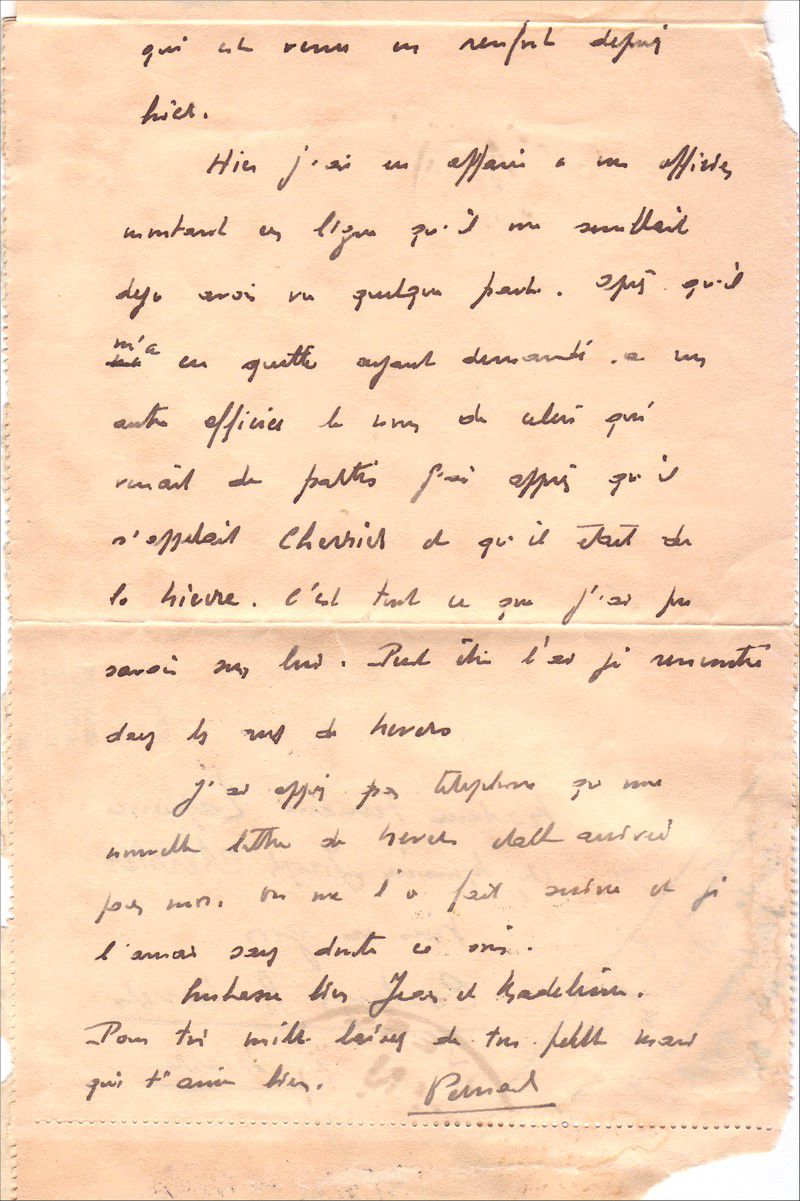 qui est venu en renfort depuis
hier.
Hier j'ai eu affaire a un officier
montant en ligne qu'il me semblait
deja avoir vu quelque part. Après qu'il
m'a eu quitté ayant demandé a un
autre officier le nom de celui qui
venait de partir j'ai appris qu'il
s'appelait Cherrier et qu'il était de
la Nièvre. C'est tout ce que j'ai pu
savoir sur lui. Peut être l'ai je rencontré
dans les rues de Nevers
J'ai appris par téléphone qu'une
nouvelle lettre de Nevers etait arrivée
pour moi. On me l'a fait suivre et je
l'aurai sans doute ce soir.
Embrasse bien Jean et Madeleine.
Pour toi mille baisers de ton petit mari
qui t'aime bien.
Bernard